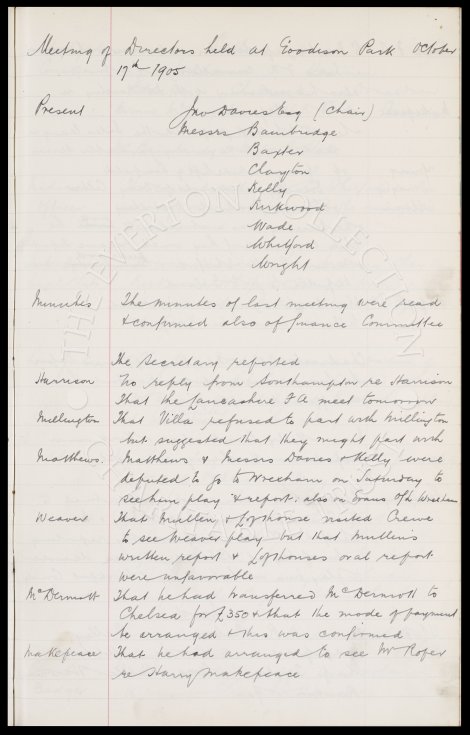 Meeting of Directors held at Goodison Park October
17th 1905
Present Jno Davies Esq (Chair)
Messrs Bainbridge
Baxter
Clayton
Kelly
Kirkwood
Wade
Whitford
Wright
Minutes The minutes of last meeting were read
& confirmed also of finance Committee
The Secretary reported
Harrison No reply from Southampton re Harrison
That the Lancashire F A meet tomorrow
Millington That Villa refused to part with Millington
but suggested that they might part with
Matthews. Matthews & Messrs Davies & Kelly were
deputed to go to Wrexham on Saturday to
see him play & report; also on Evans o/h Wrexham
Weaver That Mullen & Lofthouse visited Crewe
to see Weaver play but that Mullens
written report & Lofthouses oral report
were unfavorable
McDermott That he had transferred McDermott to
Chelsea for £350 & that the mode of payment
be arranged & this was confirmed
Makepeace That he had arranged to see Mr Roper
re Harry Makepeace
THE EVERTON COLLECTION